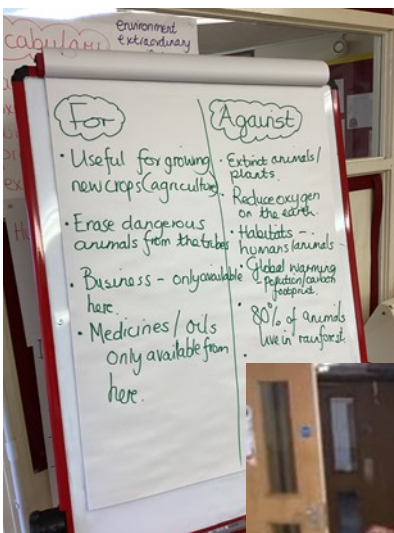 environment
cabulary
extraordinary
For
• Useful for growing
new crops (agriculture)
• Erase dangerous
animals from the tribes
• Business – only available
here.
• Medicines / oils
only available from
here.
Against
• Extinct animals/
plants.
• Reduce oxygen
on the earth.
• Habitats –
humans/animals –
• Global warming
– Pollution/carbon
footprint.
• 80% of animals
live in rainforest.
•